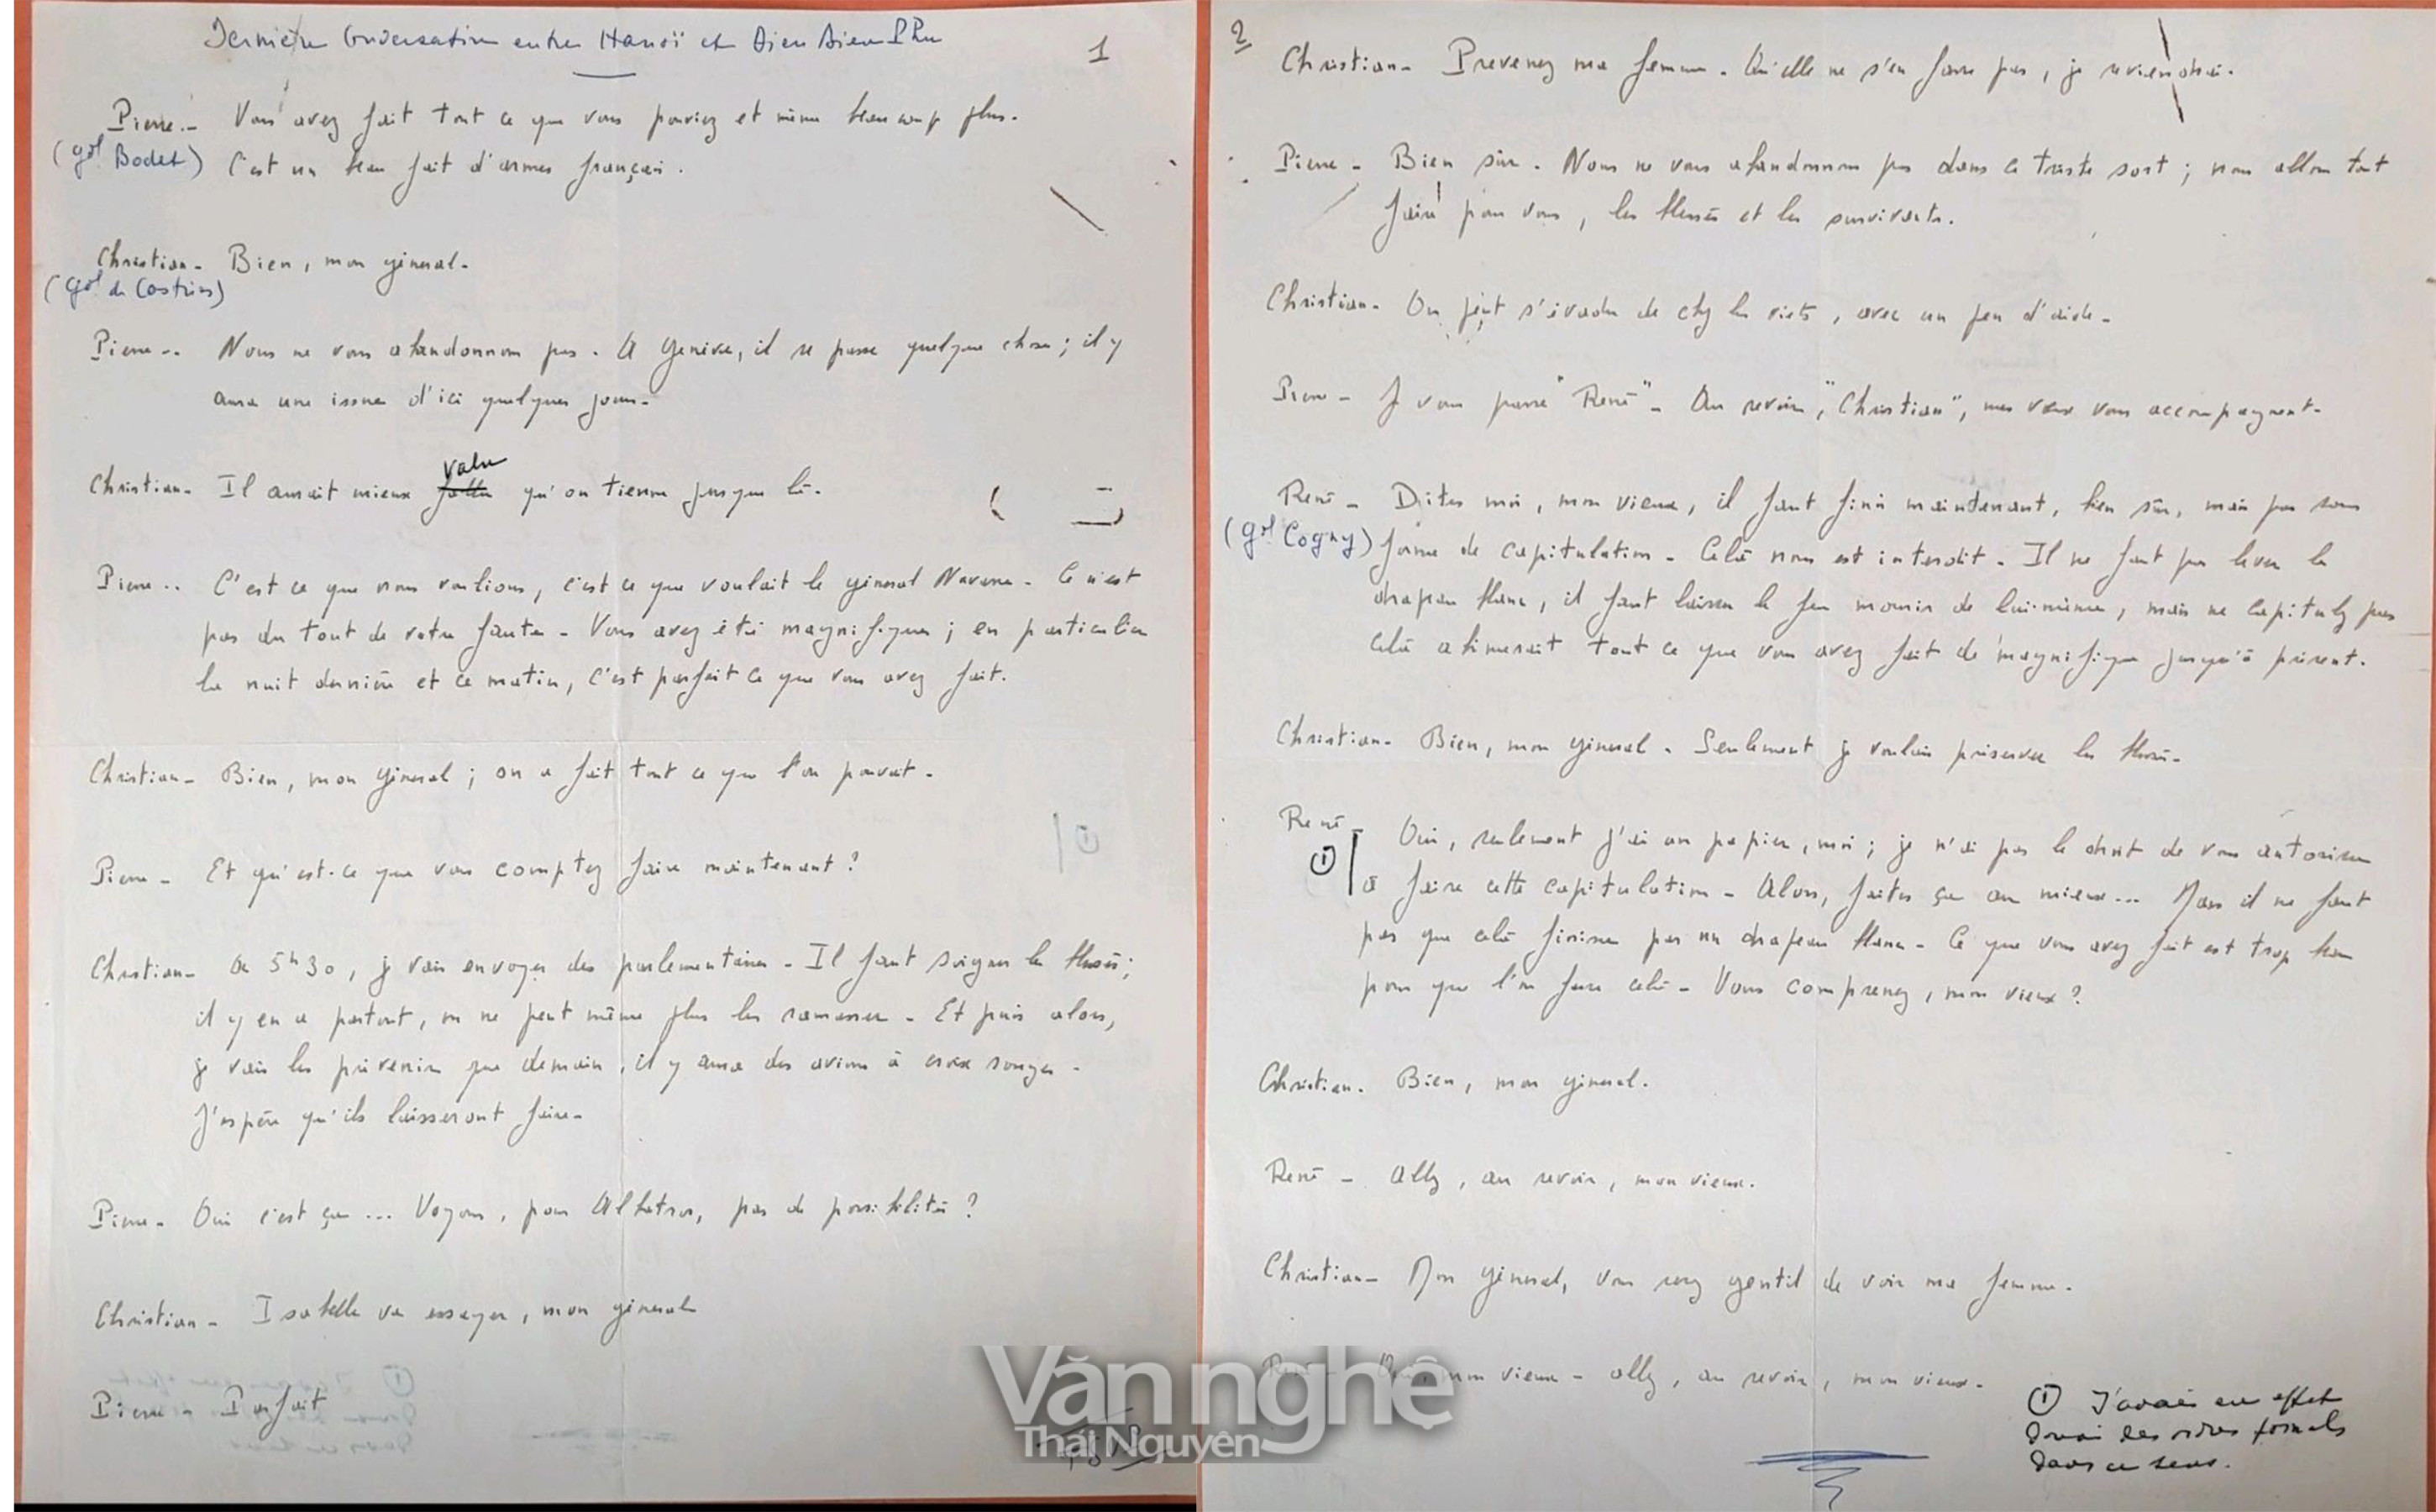 Dernière Conversation entre Hanoï et Dien Bien Phu
1
Pierre.- Vous avez fait tout ce que vous pouviez et même beaucoup plus.
(gal Bodet) C'est un beau fait d'armes français.
Christian- Bien, mon général.
(gal de Castries)
Pierre.- Nous ne vous abandonnons pas. A Genève, il se passe quelque chose ; il y
aura une issue d'ici quelques jours-
valu
Christian- Il aurait mieux fallu qu'on tienne jusque là.
Pierre.. C'est ce que nous voulions, c'est ce que voulait le général Navarre- Ce n'est
pas du tout de votre faute- Vous avez été magnifiques ; en particulier
la nuit dernière et ce matin, c'est parfait ce que vous avez fait.
Christian- Bien, mon général ; on a fait tout ce que l'on pouvait-
Pierre- Et qu'est-ce que vous comptez faire maintenant ?
①
Christian- A 5h30, je vais envoyer des parlementaires- Il faut soigner les blessés ;
il y en a partout, on ne peut même plus les ramasser- Et puis alors,
je vais les prévenir que demain, il y aura des avions à croix rouges-
J'espère qu'ils laisseront faire-
Pierre- Oui c'est ça ... Voyons, pour Albatros, pas de possibilités ?
Christian- Isabelle va essayer, mon général
Pierre- Parfait
2
Christian- Prevenez ma femme. Qu'elle ne s'en fasse pas, je reviendrai.
Pierre- Bien sûr. Nous ne vous abandonnons pas dans ce triste sort ; nous allons tout
faire pour vous, les blessés et les survivants.
Christian- On peut s'évader de chez les viets, avec un peu d'aide-
Pierre- Je vous passe "René"- Au revoir, "Christian", mes vœux vous accompagnent-
René- Dites moi, mon vieux, il faut finir maintenant, bien sûr, mais pas sous
(gal Cogny) forme de capitulation- Celà nous est interdit- Il ne faut pas lever le
drapeau blanc, il faut laisser le feu mourir de lui-même, mais ne capitulez pas
celà abimerait tout ce que vous avez fait de magnifique jusqu'à présent.
Christian- Bien, mon général. Seulement je voulais préserver les blessés-
René- Oui, seulement j'ai un papier, moi ; je n'ai pas le droit de vous autoriser
① à faire cette capitulation- Alors, faites ça au mieux... Mais il ne faut
pas que celà finisse par un drapeau blanc- Ce que vous avez fait est trop beau
pour que l'on fasse celà- Vous comprenez, mon vieux ?
Christian. Bien, mon général.
René- Allez, au revoir, mon vieux.
Christian- Mon général, vous serez gentil de voir ma femme.
René- mon vieux- allez, au revoir, mon vieux-
① J'avais en effet
des ordres formels
dans ce sens.
Văn nghệ
Thái Nguyên